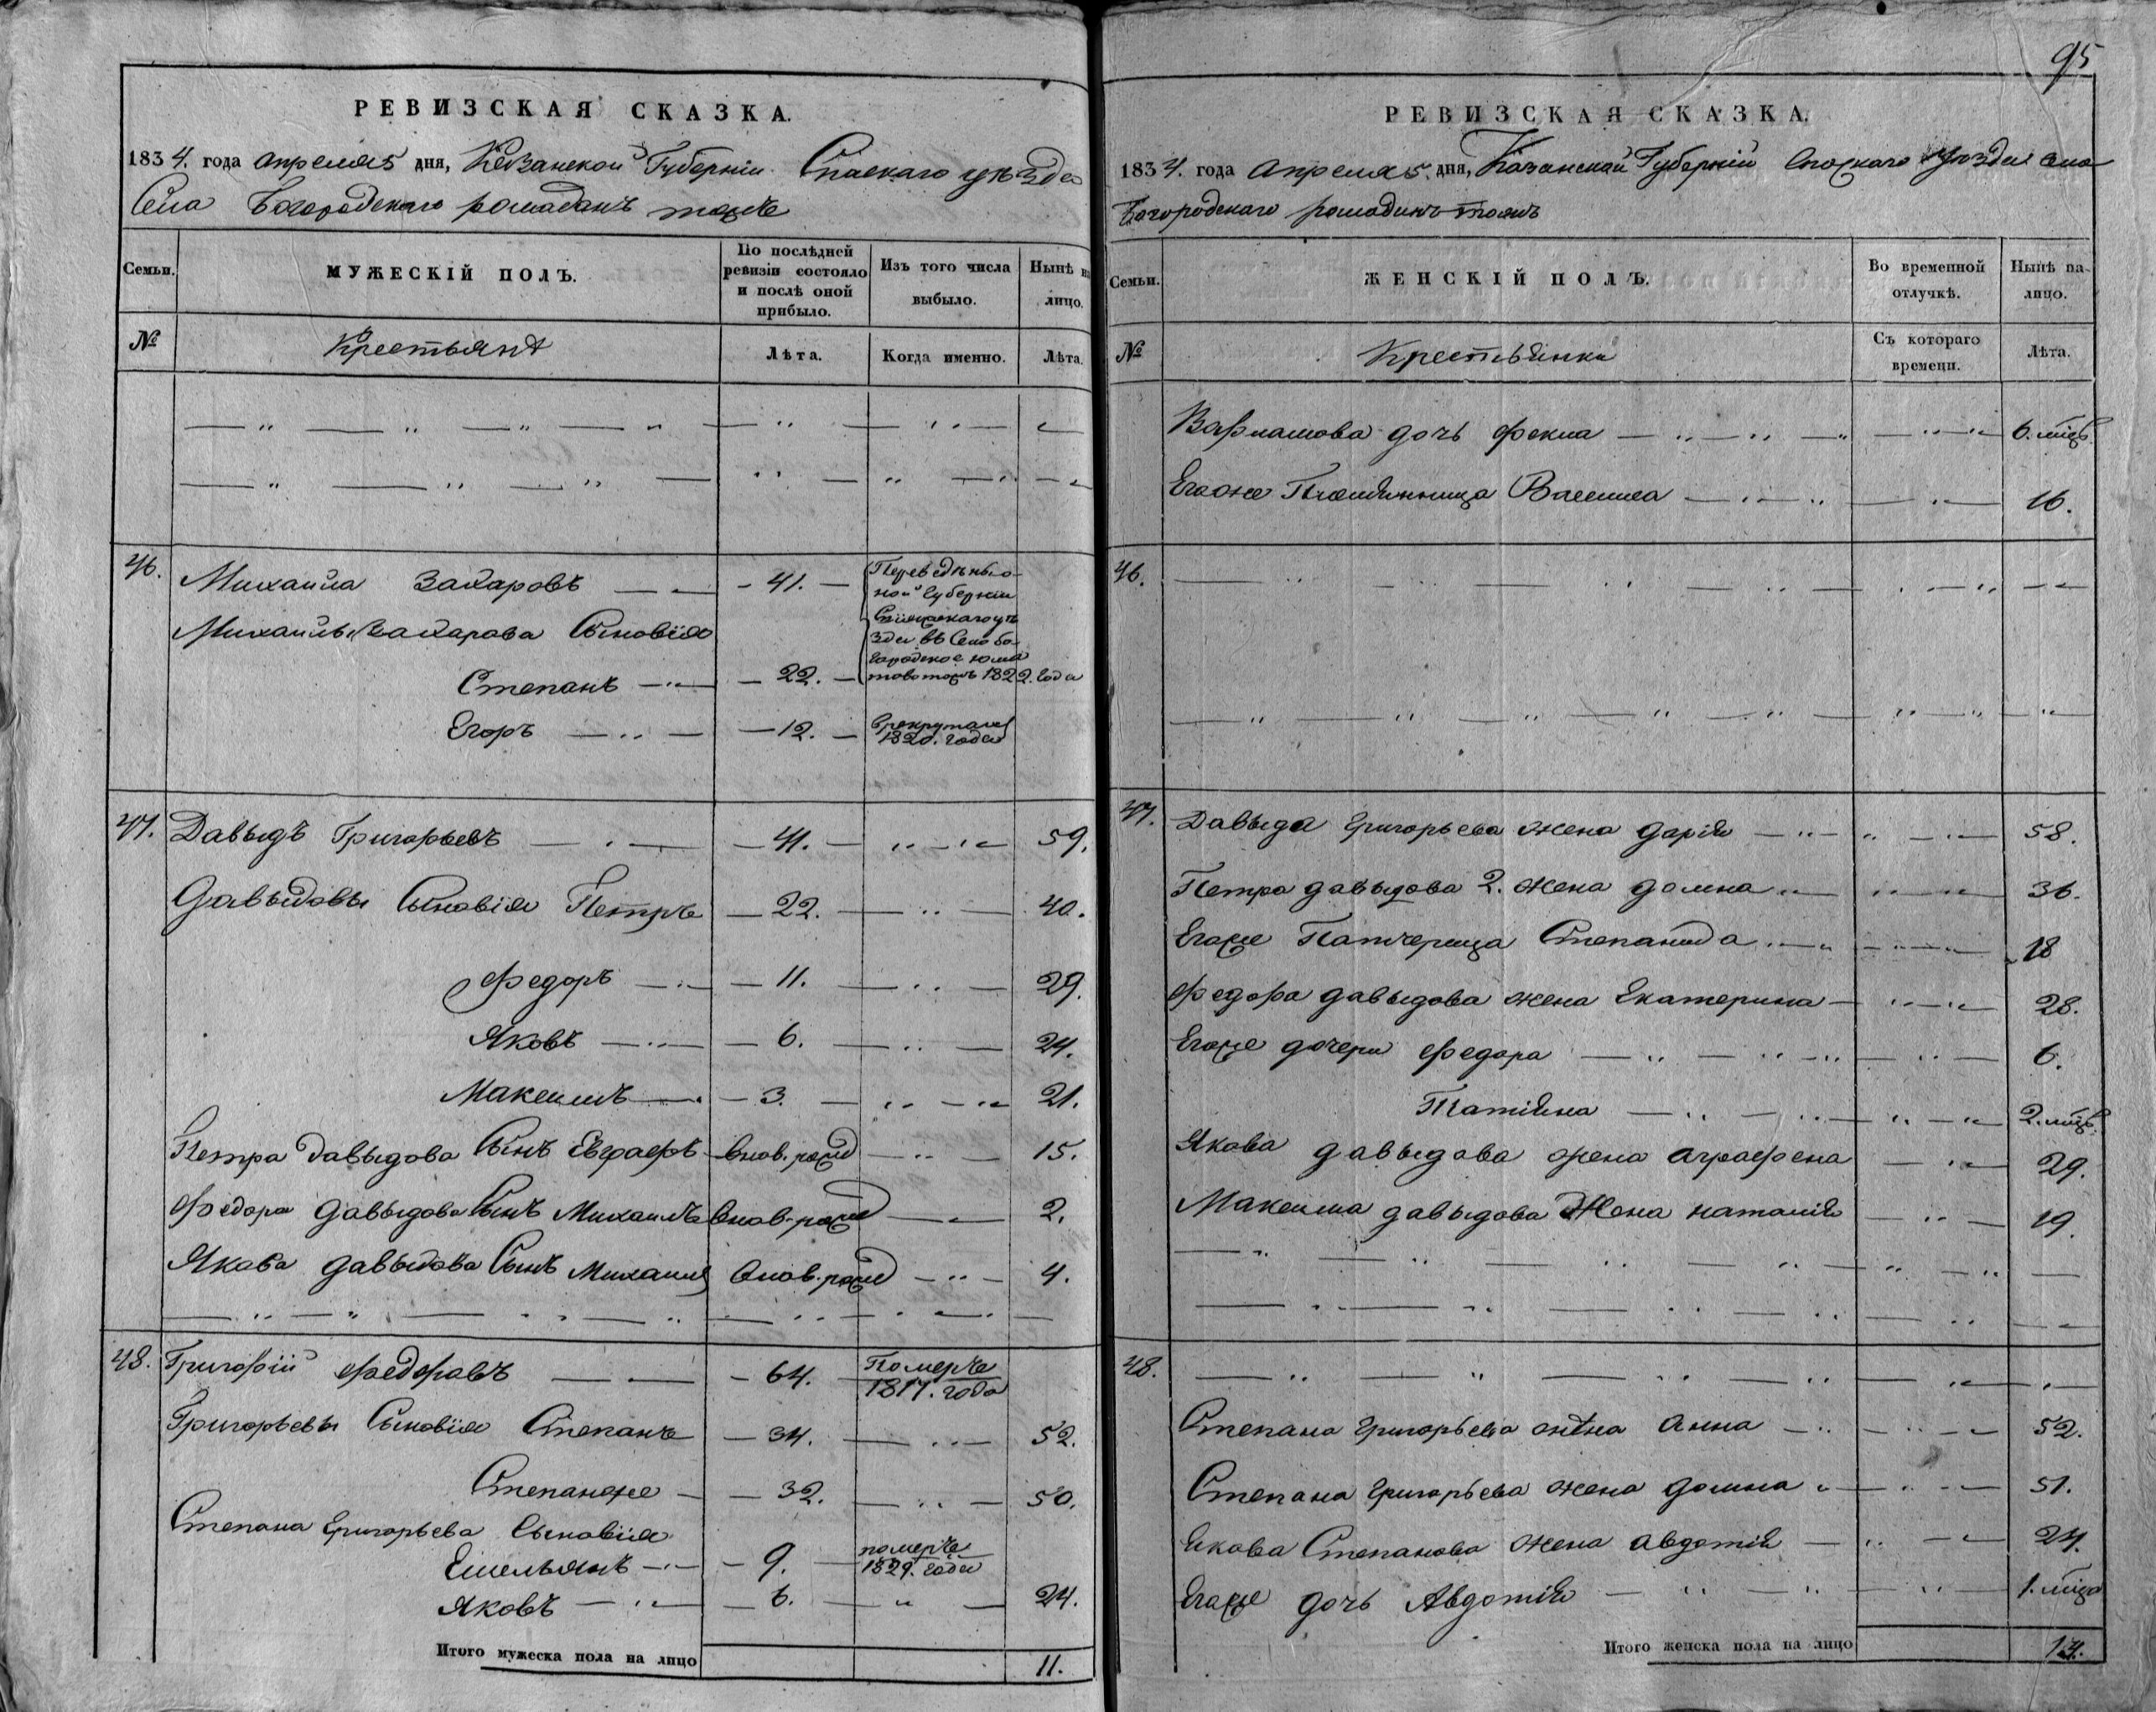 РЕВИЗСКАЯ СКАЗКА.
1834. года апреля 5 дня, Казанской Губернии Спаскаго уѣзда
Села Богородскаго ромаданъ тожъ
Семьи. МУЖЕСКІЙ ПОЛЪ. По послѣдней ревизіи состояло и послѣ оной прибыло. Изъ того числа выбыло. Нынѣ на лицо.
№ Крестьянѣ Лѣта. Когда именно. Лѣта.
46. Михаила Захаровъ 41. Переведены
ной губерніи
Михаилы Захарова Сыновія
зда въ Село бо-
городское
Степанъ 22. тожъ 1822. года
Егоръ 12. Врекруталъ
1820. года
47. Давыдъ Григорьевъ 41. 59.
Давыдовы Сыновія Петръ 22. 40.
Федоръ 11. 29.
Яковъ 6. 24.
Максимъ 3. 21.
Петра Давыдова Сынъ Евграфъ внов. рожд 15.
Федора Давыдова Сынъ Михаилъ внов. рожд 2.
Якова давыдова Сынъ Михаил внов. рожд 4.
48. Григорій Федоровъ 64. Померъ
1817. года
Григорьевы Сыновія Степанъ 34. 52.
Степанже 32. 50.
Степана Григорьева Сыновія
Емельянъ 9. померъ
1829. года
Яковъ 6. 24.
Итого мужеска пола на лицо 11.
95
РЕВИЗСКАЯ СКАЗКА.
1834. года Апреля 5. дня, Казанской Губерніи Спаскаго уѣзда села
Богородскаго ромаданъ тожъ
Семьи. ЖЕНСКІЙ ПОЛЪ. Во временной отлучкѣ. Нынѣ на лицо.
№ Крестьянки Съ котораго времени. Лѣта.
Варламова дочь Фекла 6. мцъ
Егоже Племянница Васшиса 16.
46.
47. Давыда Григорьева жена дарія 58.
Петра давыдова 2. жена домна 36.
Егоже Патчерица Степанида 18
Федора давыдова жена Екатерина 28.
Егоже дочери Федора 6.
Татіяна 2. мцъ
Якова давыдова жена аграфена 29.
Максима давыдова Жена наталія 19.
48.
Степана Григорьева жена Анна 52.
Степана Григорьева жена домна 51.
Якова Степанова жена авдотія 24.
Егоже дочь Авдотія 1. мца
Итого женска пола на лицо 14.